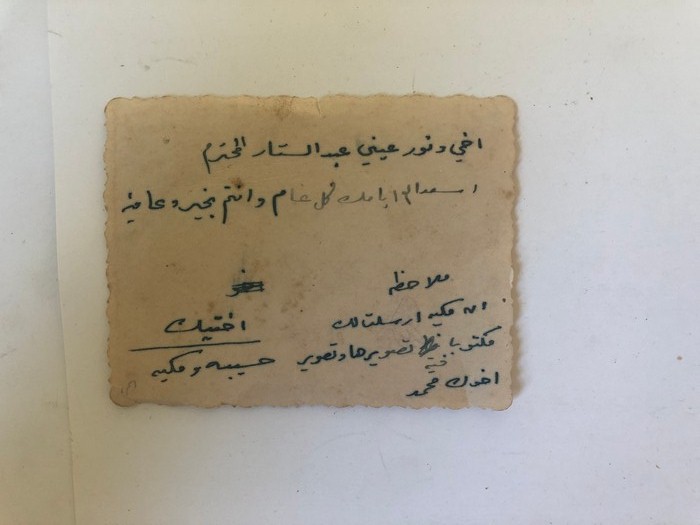 اخي ونور عيني عبد الستار المحترم
اسعد الله ايامك كل عام وانتم بخير وعافية
ملاحظه
ان مكيه ارسلتالك
مكتوبا فيه تصويرها وتصوير
اخوك محمد
اختيك
حسيبه ومكيه